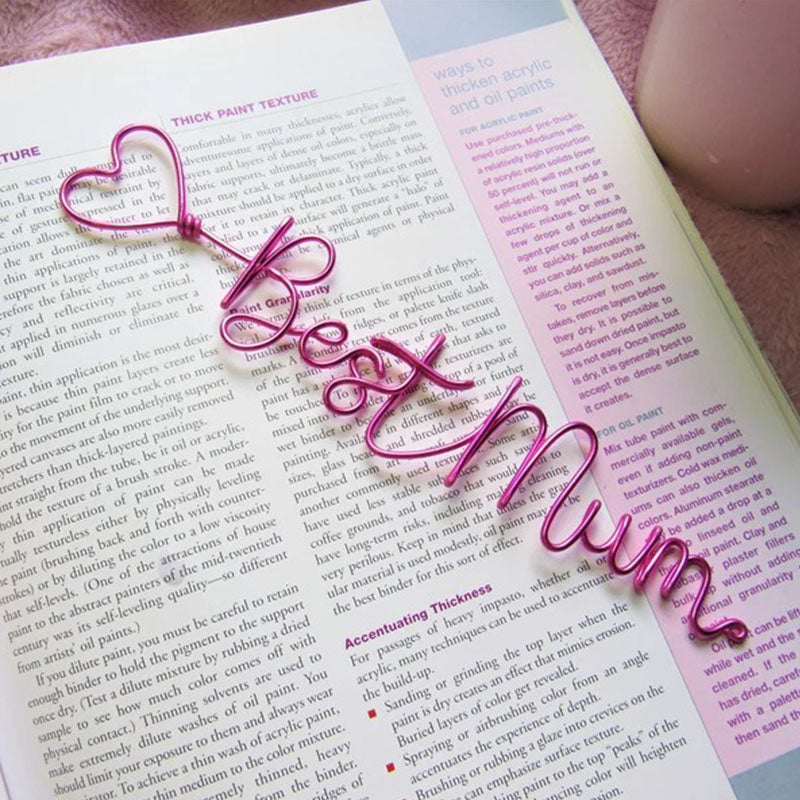 TURE
THICK PAINT TEXTURE
can seem dull
in, flat paint may be desirable
art dominates the
thin applications of paint.
support is largely retained in the
erefore the fabric chosen as well as
cy and reflectivity are critical.
applied in numerous glazes over a
will diminish or eliminate the
texture.
paint, thin application is the most desir-
is because thin paint layers create less
ity for the paint film to crack or to move
to the movement of the underlying support.
ered canvases are also more easily removed
etchers than thick-layered paintings.
int straight from the tube, be it oil or acrylic,
hold the texture of a brush stroke. A moder-
thin application of paint can be made
tually textureless either by physically leveling
the paint (brushing back and forth with counter-
strokes) or by diluting the color to a low viscosity
that self-levels. (One of the attractions of house
paint to the abstract painters of the mid-twentieth
century was its self-leveling quality—so different
from artists' oil paints.)
If you dilute paint, you must be careful to retain
enough binder to hold the pigment to the support
once dry. (Test a dilute mixture by rubbing a dried
sample to see how much color comes off with
physical contact.) Thinning solvents are used to
make extremely dilute washes of oil paint. You
should limit your exposure to them and always wear
To achieve a thin wash of acrylic paint,
thin medium to the color mixture.
thinned, heavy
from the binder.
ridges of
comfortable in many thicknesses, acrylics allow
adventuresome applications of paint. Conversely,
layers and layers of dense oil colors, especially on
fabric supports, ultimately become a brittle mass
that may crack or delaminate. Typically, a thick
texture should be applied to a dry surface in order
to retain its character. Thick acrylic paint
applied to a surface will generate a "halo" of
application of paint. Paint
chemical agents or physical
Best Mum
Paint Granularity
We think of texture in terms of the phys-
left from the application tool:
ridges, or palette knife slash
marks. texture comes from the texture
earth, textured
that asks to
be touched. texturizers are
mixed into of a pool of
wet binder to further
painting. Available in different shapes and
sizes, glass beads and shredded rubber
purchased from Some
another commonly used such
have used less stable cleaning
coffee grounds, and tobacco that would
have long-term risks, including making the
very perilous. Keep in mind that unless the gran-
ular material is used modestly, oil paint may be
the best binder for this sort of effect.
Accentuating Thickness
For passages of heavy impasto, whether oil or
acrylic, many techniques can be used to accentuate
the build-up.
Sanding or grinding the top layer when the
paint is dry creates an effect that mimics erosion.
Buried layers of color get revealed.
Spraying or airbrushing color from an angle
accentuates the experience of depth.
Brushing or rubbing a glaze into crevices on the
can emphasize surface texture.
paint to the top "peaks" of the
color will heighten
ways to
thicken acrylic
and oil paints
FOR ACRYLIC PAINT
Use purchased pre-thick-
ened colors. Mediums with
a relatively high proportion
of acrylic resin solids (over
50 percent) will not run or
self-level. You may add a
thickening agent to an
acrylic mixture. Or mix a
few drops of thickening
agent per cup of color and
stir quickly. Alternatively,
you can add solids such as
silica, clay, and sawdust.
To recover from mis-
takes, remove layers before
they dry. It is possible to
sand down dried paint, but
it is not easy. Once impasto
is dry, it is generally best to
accept the dense surface
it creates.
FOR OIL PAINT
Mix tube paint with com-
mercially available gels,
even if adding non-paint
texturizers. Cold wax medi-
ums can also thicken oil
colors. Aluminum stearate
be added a drop at a
linseed oil and
oil paint. Clay and
plaster fillers
bulk without adding
additional granularity
Oil can be lift
while wet and the
cleaned. If the
has dried, carefu
with a palette
then sand th